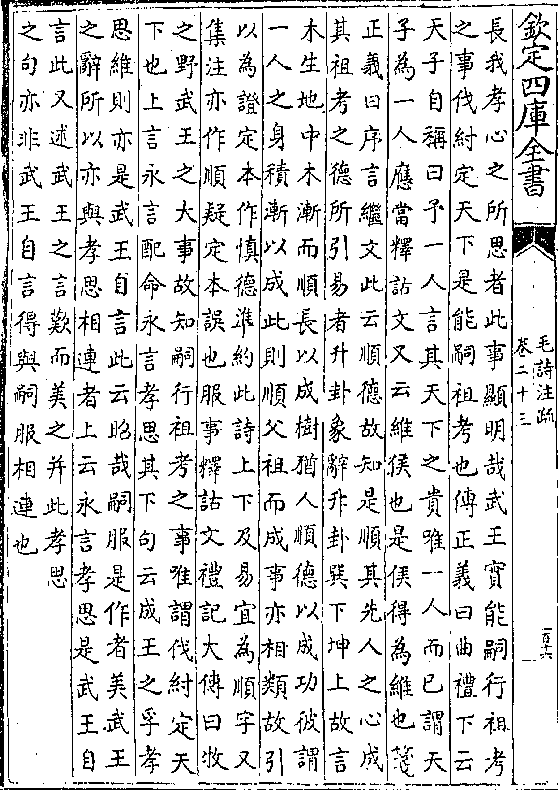 欽定四庫全書
毛詩注疏
卷二十三
長我孝心之所思者此事顯明哉武王實能嗣行祖考
之事伐紂定天下是能嗣祖考也傳正義曰曲禮下云
天子自稱曰予一人言其天下之貴唯一人而已謂天
子為一人應當釋詁文又云維侯也是侯得為維也箋
正義曰序言繼文此云順德故知是順其先人之心成
其祖考之德所引易者升卦象辭升卦巽下坤上故言
木生地中木漸而順長以成樹猶人順德以成功彼謂
一人之身積漸以成此則順父祖而成事亦相類故引
以為證定本作慎德準約此詩上下及易宜為順字又
集注亦作順疑定本誤也服事釋詁文禮記大傳曰牧
之野武王之大事故知嗣行祖考之事唯謂伐紂定天
下也上言永言配命永言孝思其下句云成王之孚孝
思維則亦是武王自言此云昭哉嗣服是作者美武王
之辭所以亦與孝思相連者上云永言孝思是武王自
言此又述武王之言歎而美之并此孝思
之句亦非武王自言得與嗣服相連也